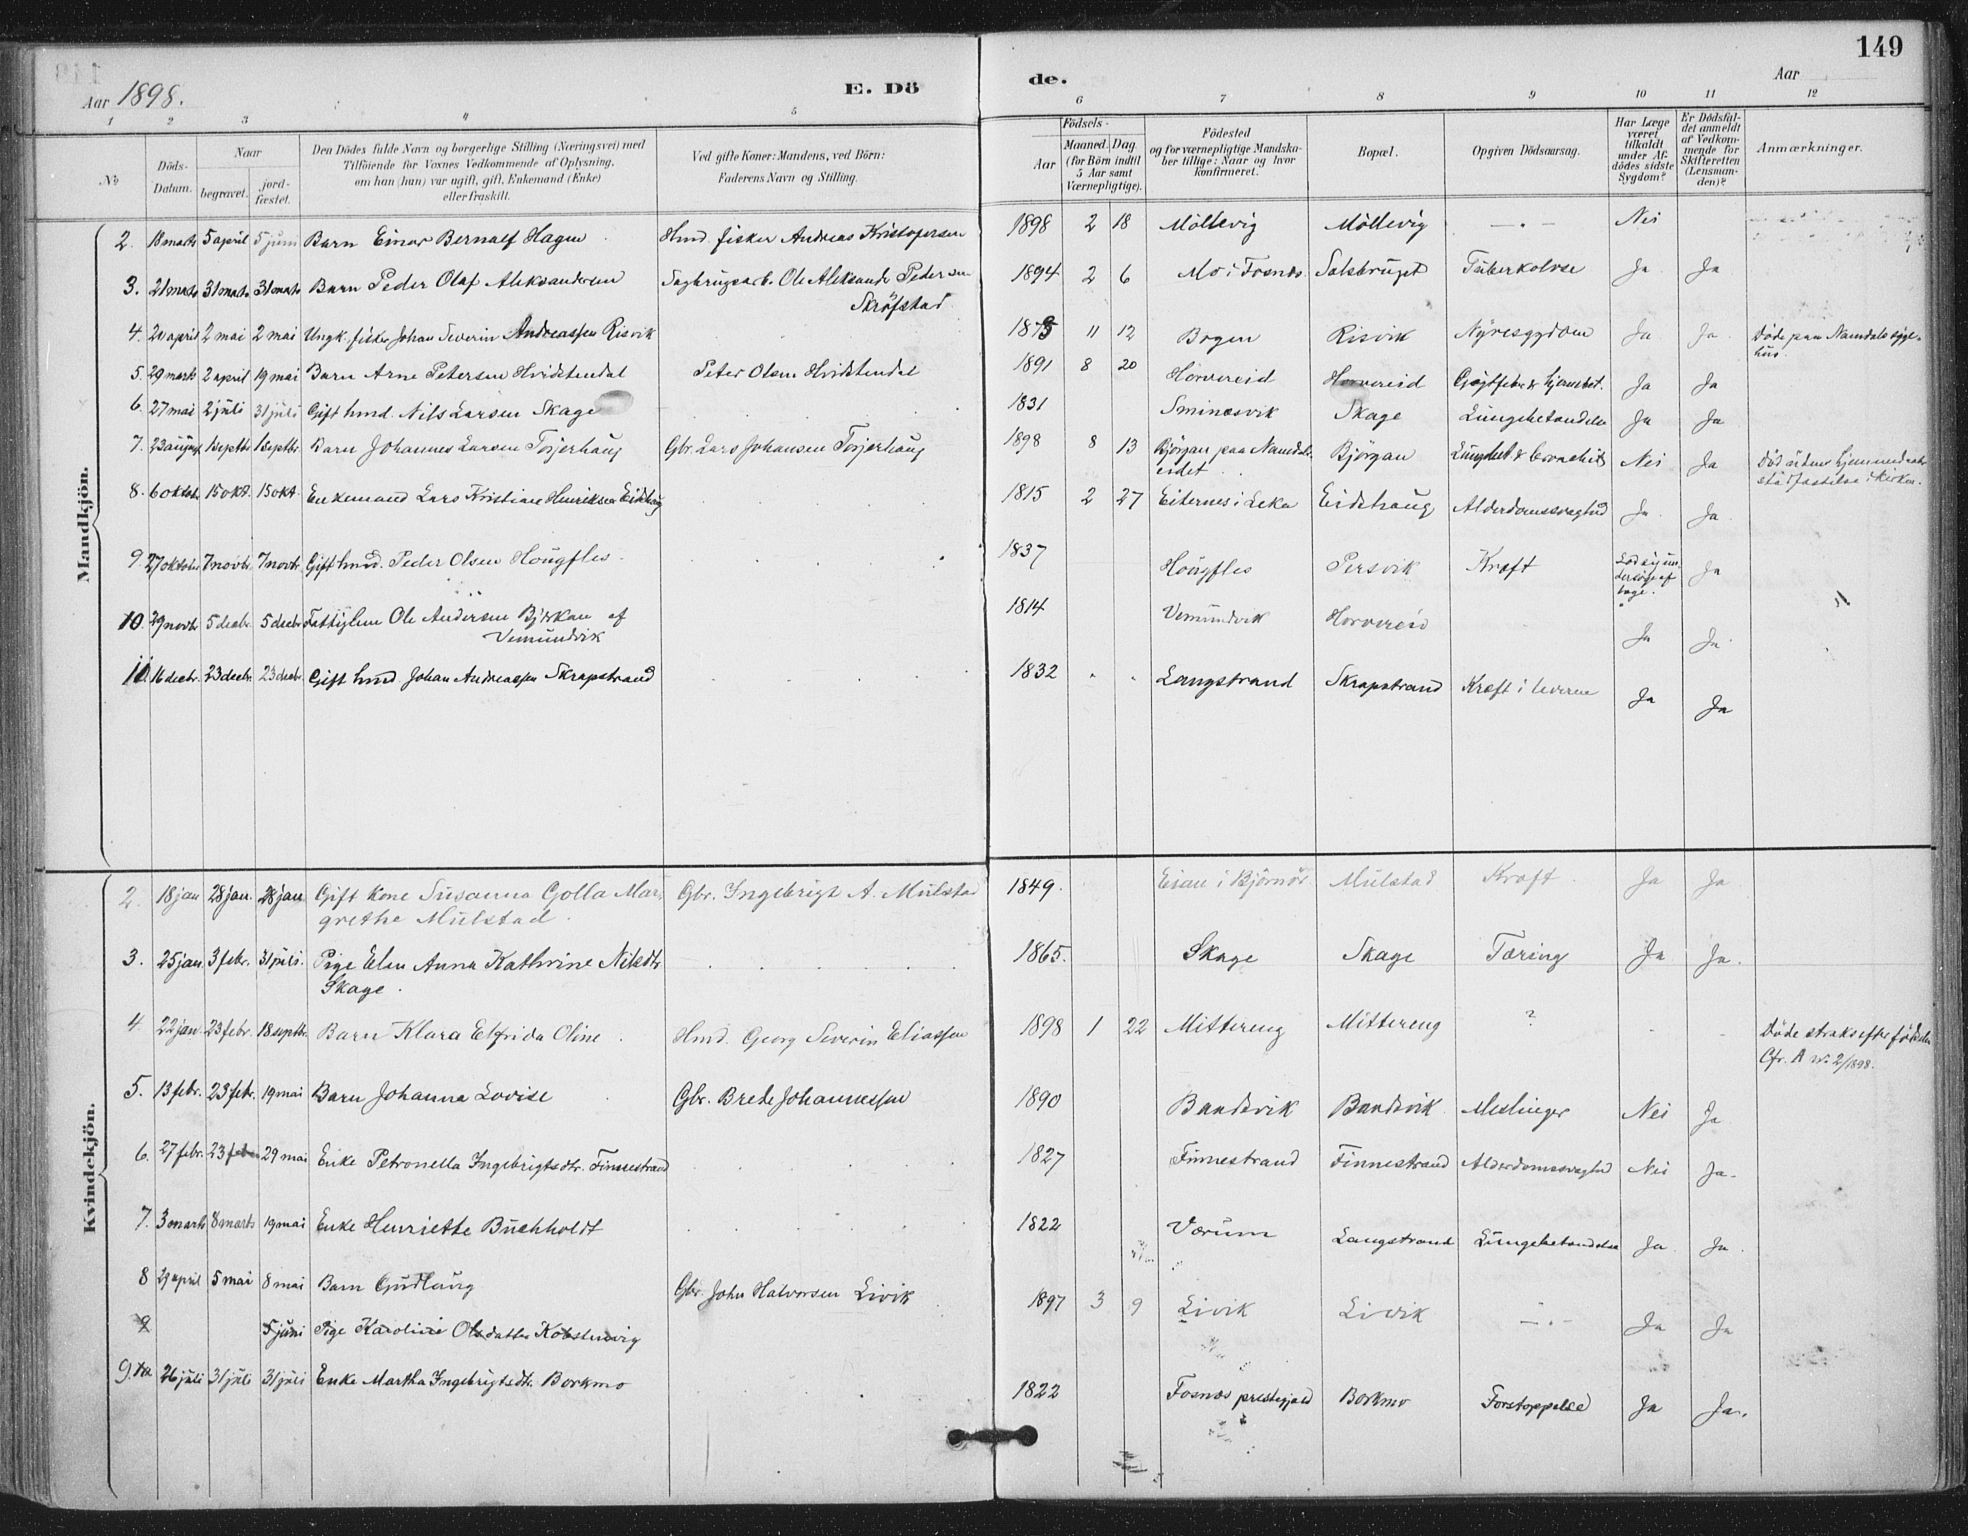 149
Aar 1898.
E. Dö
de.
Aar
1 2 3 4 5 6 7 8 9 10 11 12
№
Döds-Datum.
Naar
begravet.
jord-fæstet.
Den Dödes fulde Navn og borgerlige Stilling (Næringsvei) med
Tilföiende for Voxnes Vedkommende af Oplysning,
om han (hun) var ugift, gift, Enkemand (Enke)
eller fraskilt.
Ved gifte Koner: Mandens, ved Börn:
Faderens Navn og Stilling.
Födsels-
Aar
Maaned. Dag
(for Börn indtil
5 Aar samt
Værnepligtige).
Födested
og for værnepligtige Mandska-
ber tillige: Naar og hvor
konfirmeret.
Bopæl.
Opgiven Dödsaarsag.
Har Læge
været
tilkaldt
under Af-
dödes sidste
Sygdom?
Er Dödsfal-
det anmeldt
af Vedkom-
mende for
Skifteretten
(Lensman-
den)?
Anmærkninger.
Mandkjön.
2. 18 marts 5 april 5 juni Barn Einar Bernalf Hagen Hmd. fisker Andreas Kristofersen 1898 2 18 Möllevig Möllevig — . — Nei
3. 21 marts 31 marts 31 marts Barn Peder Olaf Aleksandersen Sagbrugsarb. Ole Aleksander Pedersen 1894 2 6 Mo i Fosnes Salsbruget Tuberkolose Ja Ja
Skröfstad
4. 20 april 2 mai 2 mai Ungk. fisker Johan Severin Andreassen Risvik 11 12 Bogen Risvik Nyresygdom Ja Ja Döde paa Namdals syge-
hus.
5. 29 marts 2 april 19 mai Barn Arne Petersen Hvidstendal Peter Olsen Hvidstendal 1891 8 20 Horvereid Horvereid Gigtfeber & hjernebet. Ja Ja
6. 27 mai 2 juli 31 juli Gift hmd. Nils Larsen Skage 1831 Sminesvik Skage Lungebetændelse Ja Ja
7. 23 august 18 septbr 18 septbr. Barn Johannes Larsen Torjerhaug Gbr. Lars Johansen Torjerhaug 1898 8 13 Björgan paa Namdals-
eidet Björgan Lungebet. & bronchit Nei Ja Död uden hjemmedaab
stadfæstelse i kirken.
8. 6 oktob. 15 okt. 15 okt. Enkemand Lars Kristian Henriksen Eidshaug 1815 2 27 Eiternes i Leka Eidshaug Alderdomssvaghed Ja Ja
9. 27 oktober 7 novbr. 7 novbr. Gift hmd. Peder Olsen Hougfles 1837 Hougfles Persvik Kræft Lod sig un-
dersöge af
læge. Ja
10. 29 novbr. 5 decbr 5 decbr Fattiglem Ole Andersen Björkan af
Vemundvik 1814 Vemundvik Horvereid Ja Ja
11. 16 decbr. 23 decbr. 23 decbr. Gift hmd Johan Andreassen Skrapstrand 1832 Langstrand Skrapstrand Kræft i leveren Ja Ja
Kvindekjön.
2. 18 jan 28 jan. 28 jan Gift kone Susanna Golla Mar-
grethe Mulstad. Gbr. Ingebrigt A. Mulstad 1849. i Björnör Mulstad Kræft Ja Ja
3. 25 jan. 3 febr. 31 juli. Pige Elen Anna Kathrine Nilsdtr.
Skage. 1865. Skage Skage Tæring Ja Ja.
4 22 jan 23 febr. 18 septbr. Barn Klara Elfrida Oline Hmd. Georg Severin Eliassen 1898 1 22 Mittereng Mittereng ? Döde straks efter födselen
Cfr. A № 2/1898.
5. 13 febr. 23 febr. 19 mai Barn Johanna Lovise Gbr. Brede Johannessen 1890 Bandsvik Bandsvik Meslinger Nei Ja
6. 27 febr. 23 29 mai Enke Petronella Ingebrigtsdtr. Finnestrand 1827 Finnestrand Finnestrand Alderdomssvaghed Nei Ja
7. 3 marts 8 marts 19 mai Enke Henriette Buchholdt 1822 Værum Langstrand Lungebetændelse Ja Ja
8 29 april 5 mai 8 mai Barn Gudlaug Gbr. John Halvorsen Livik 1897 3 9 Livik Livik — . — Ja Ja
9 5 juni Pige Karoline Olsdatter Kolstenvig
9. 10. 26 juli 31 juli 31 juli Enke Martha Ingebrigtsdtr. Borkmo 1822 Fosnæs prestegjeld Borkmo Forstoppelse Ja Ja.